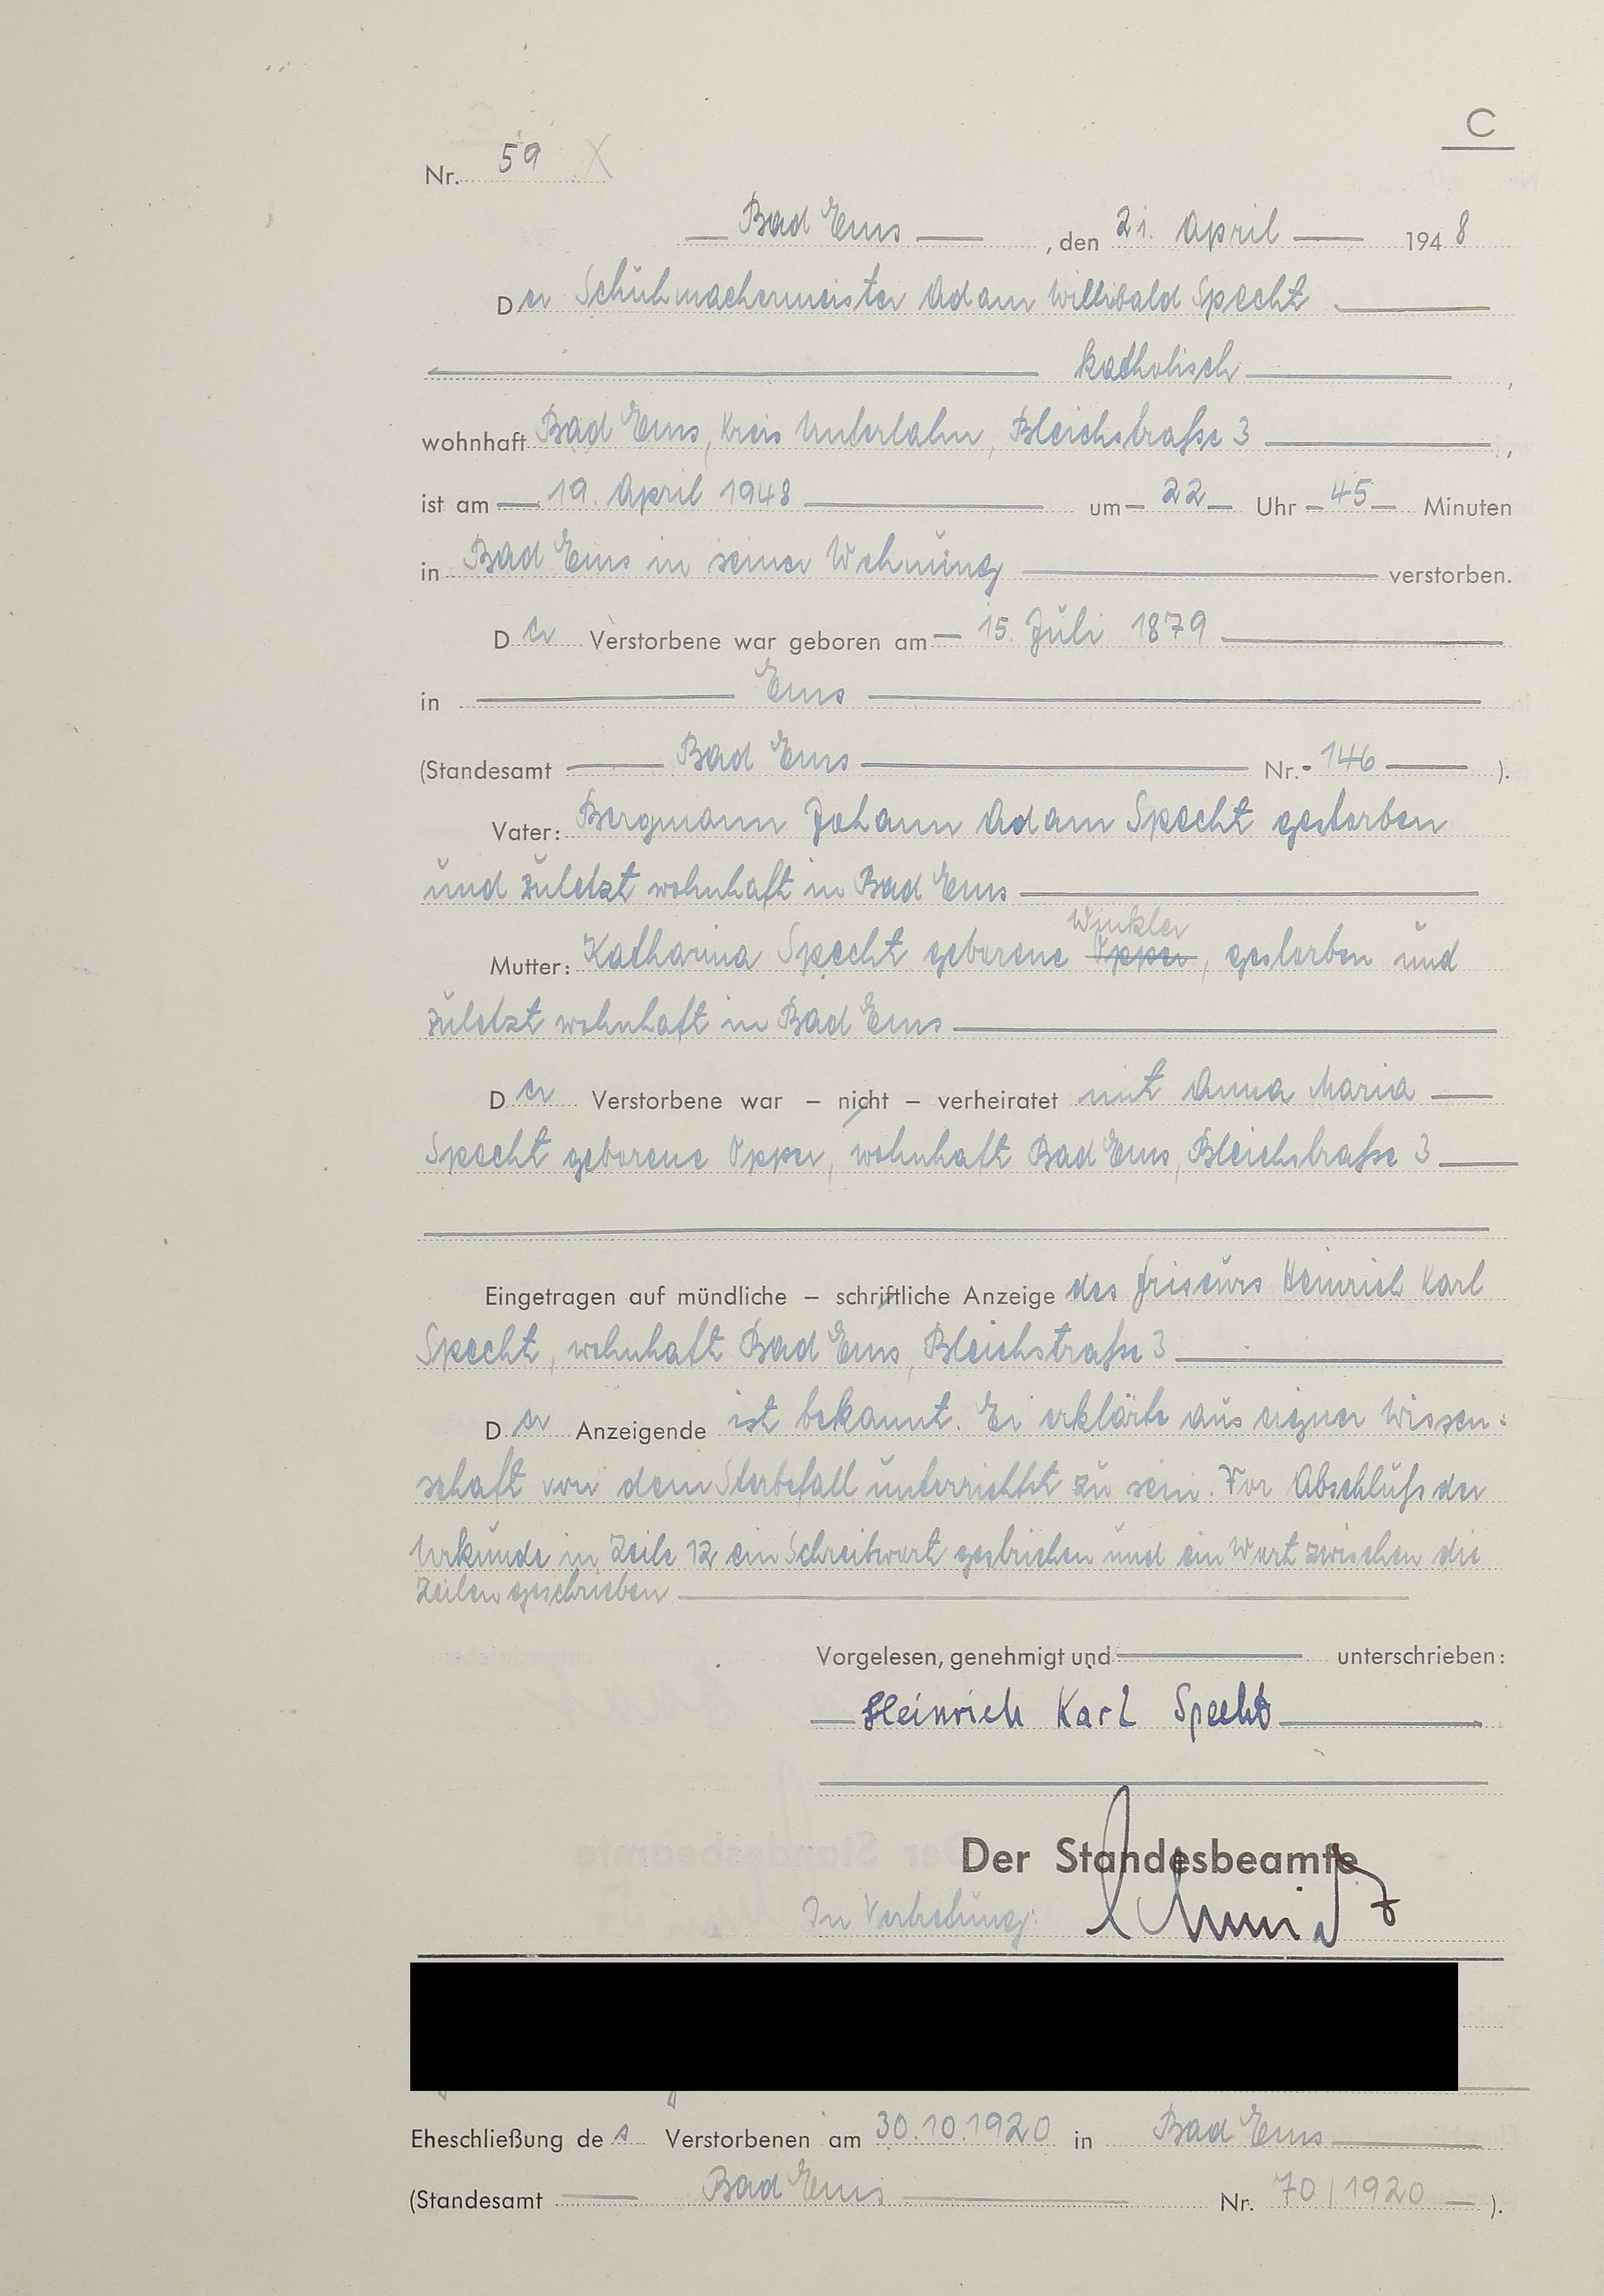 C
Nr. 59 X
Bad Ems, den 21. April 1948
Der Schuhmachermeister Adam Willibald Specht
katholisch,
wohnhaft Bad Ems, Kreis Unterlahn, Bleichstraße 3,
ist am 19. April 1948 um 22 Uhr 45 Minuten
in Bad Ems in seiner Wohnung verstorben.
Der Verstorbene war geboren am 15. Juli 1879
in Ems
(Standesamt Bad Ems Nr. 146).
Vater: Bergmann Johann Adam Specht gestorben
und zuletzt wohnhaft in Bad Ems
Winkler
Mutter: Katharina Specht geborene Opper, gestorben und
zuletzt wohnhaft in Bad Ems
Der Verstorbene war – nicht – verheiratet mit Anna Maria
Specht geborene Opper, wohnhaft Bad Ems, Bleichstraße 3
Eingetragen auf mündliche – schriftliche Anzeige des Friseurs Heinrich Karl
Specht, wohnhaft Bad Ems, Bleichstraße 3
Der Anzeigende ist bekannt. Er erklärte aus eigner Wissen:
schaft von dem Sterbefall unterrichtet zu sein. Vor Abschluß der
Urkunde in Zeile 12 ein Schreibwort gestrichen und ein Wort zwischen die
Zeilen geschrieben
Vorgelesen, genehmigt und unterschrieben:
Heinrich Karl Specht
Der Standesbeamte
In Vertretung: Schmidt
Eheschließung des Verstorbenen am 30.10.1920 in Bad Ems
(Standesamt Bad Ems Nr. 70/1920).